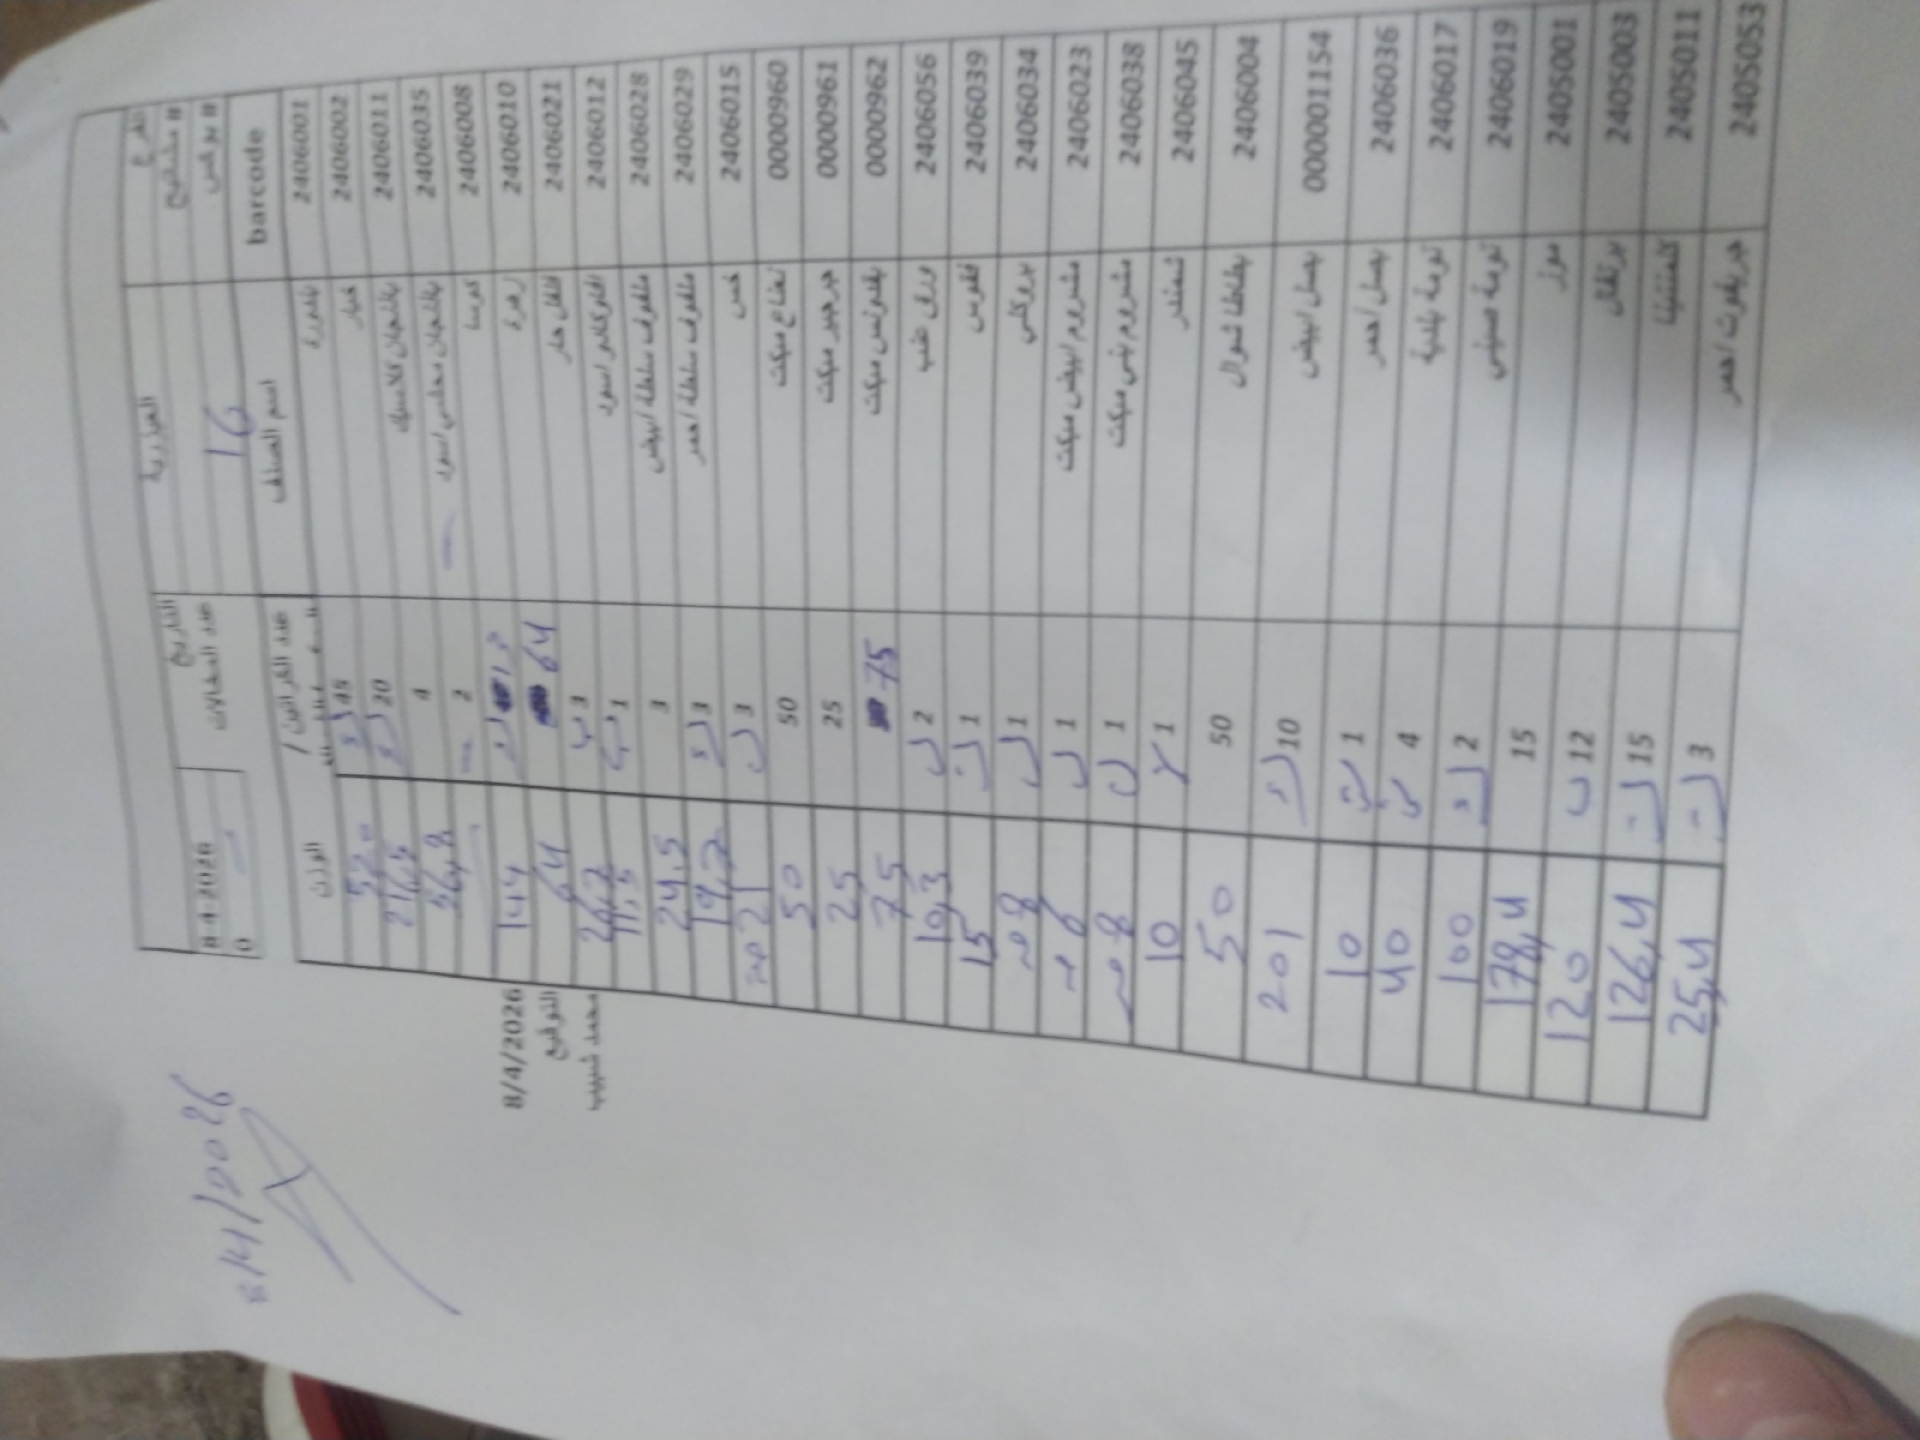 الفرع العيزرية التاريخ 8-4-2026
# مشتيح عدد الشالات 0
# بوكس 16
barcode اسم الصنف عدد الكراتين / الوزن
2406001 بندورة 45 520
2406002 خيار 20 216,5
2406011 باذنجان كلاسيك 4 36,8
2406035 باذنجان معلس اسود 2
2406008 كوسا
2406010 زهرة 144
2406021 فلفل حار 64 64
2406012 افوكادو اسود 3 26,7
2406028 ملفوف سلطة ابيض 1 11,5
2406029 ملفوف سلطة احمر 3 24,5
2406015 خس 3 19,7
0000960 نعناع مبكت 50 50
0000961 جرجير مبكت 25 25
0000962 بقدونس مبكت 75 75
2406056 ورق عنب 2 19,3
2406039 فطرس 1 15
2406034 بروكلي 1 8
2406023 مشروم ابيض مبكت 1 6
2406038 مشروم بني مبكت 1 8
2406045 شمندر 1 10
2406004 بطاطا شوال 50 50
000001154 بصل ابيض 10 201
2406036 بصل احمر 1 10
2406017 ثومة بلدية 4 40
2406019 ثومة صيني 2 100
2405001 موز 15 178,4
2405003 برتقال 12 120
2405011 كلمنتينا 15 126,4
2405053 جريفوت احمر 3 25,4
8/4/2026
التوقيع
محمد شبيب
8/4/2026